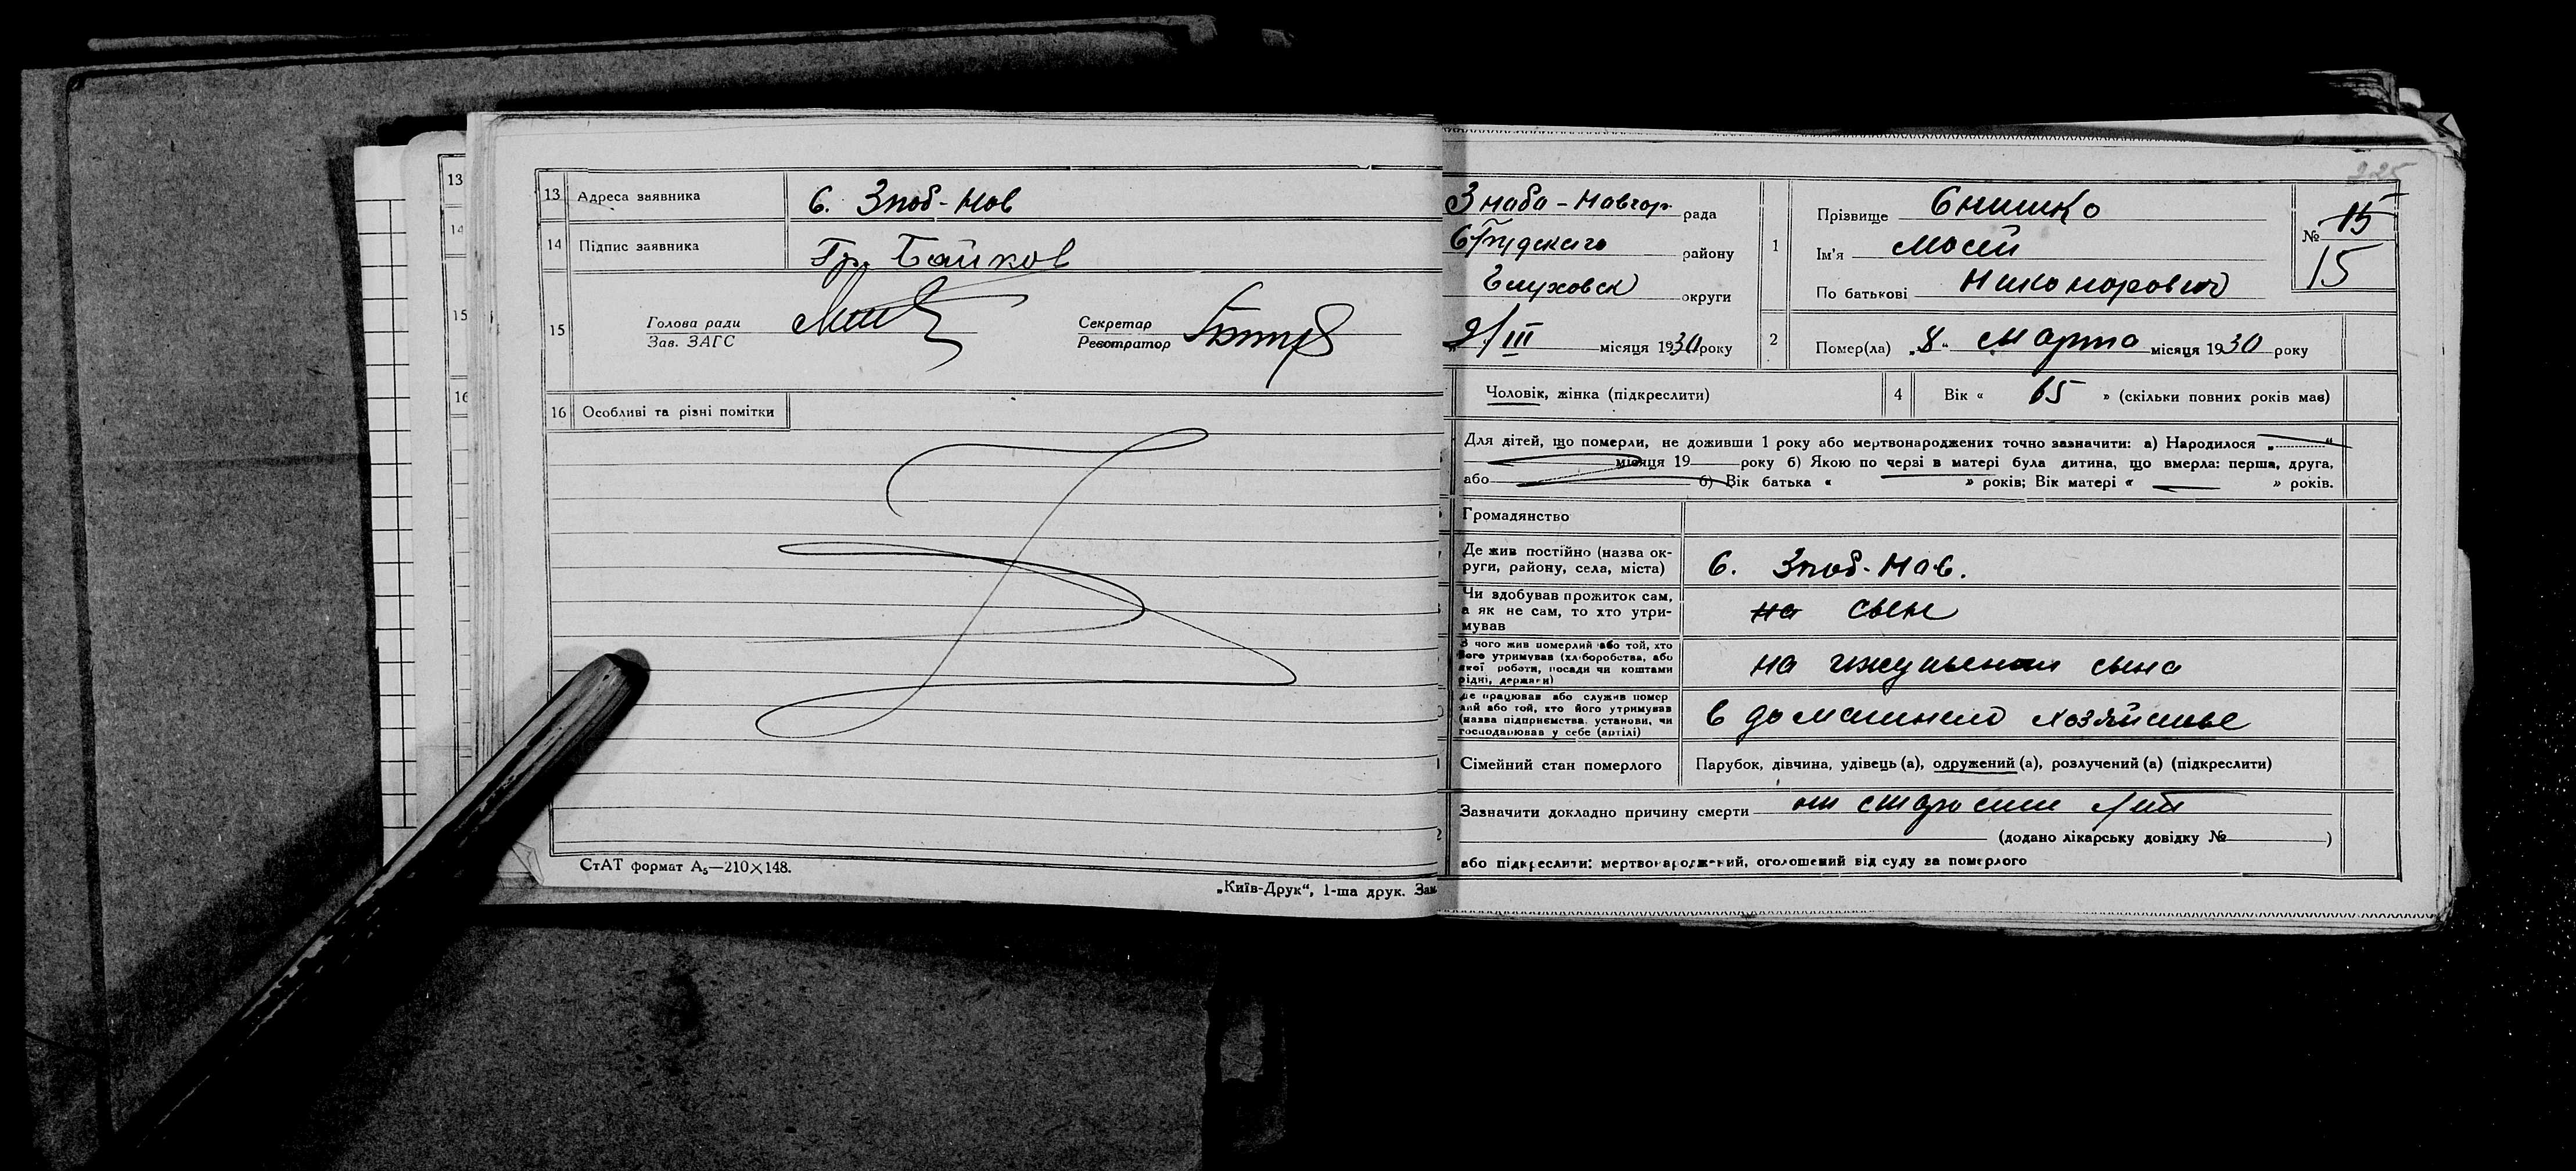 13
14
15
16
13 Адреса заявника С. Зноб-Нов
14 Підпис заявника Гр. Байков
15 Голова ради
Зав. ЗАГС
Секретар
Реєстратор
16 Особливі та різні помітки
СтАТ формат А₅—210×148.
„Київ-Друк“, 1-ша друк. Зам
225
Зноба-Навгор. рада
С/Будского району
Глуховск округи
9/III місяця 1930 року
1 Прізвище Єнишко
Ім'я Мосей
По батькові Никонорович
№ 15
15
2 Помер(ла) „8“ Марта місяця 1930 року
Чоловік, жінка (підкреслити)
4 Вік « 65 » (скільки повних років мав)
Для дітей, що померли, не доживши 1 року або мертвонароджених точно зазначити: а) Народилося „ “
місяця 19 року б) Якою по черзі в матері була дитина, що вмерла: перша, друга,
або б) Вік батька « » років; Вік матері « » років.
Громадянство
Де жив постійно (назва ок-
руги, району, села, міста) С. Зноб-Нав.
Чи здобував прожиток сам,
а як не сам, то хто утри-
мував на сын
З чого жив померлий або той, хто
його утримував (хліборобства, або
якої роботи, посади чи коштами
рідні, держави) на иждивении сына
Де працював або служив помер
лий або той, хто його утримував
(назва підприємства, установи, чи
господарював у себе (артілі) в домашнем хозяйстве
Сімейний стан померлого Парубок, дівчина, удівець (а), одружений (а), розлучений (а) (підкреслити)
Зазначити докладно причину смерти от старости лет
(додано лікарську довідку № )
або підкреслити: мертвонароджений, оголошений від суду за померлого